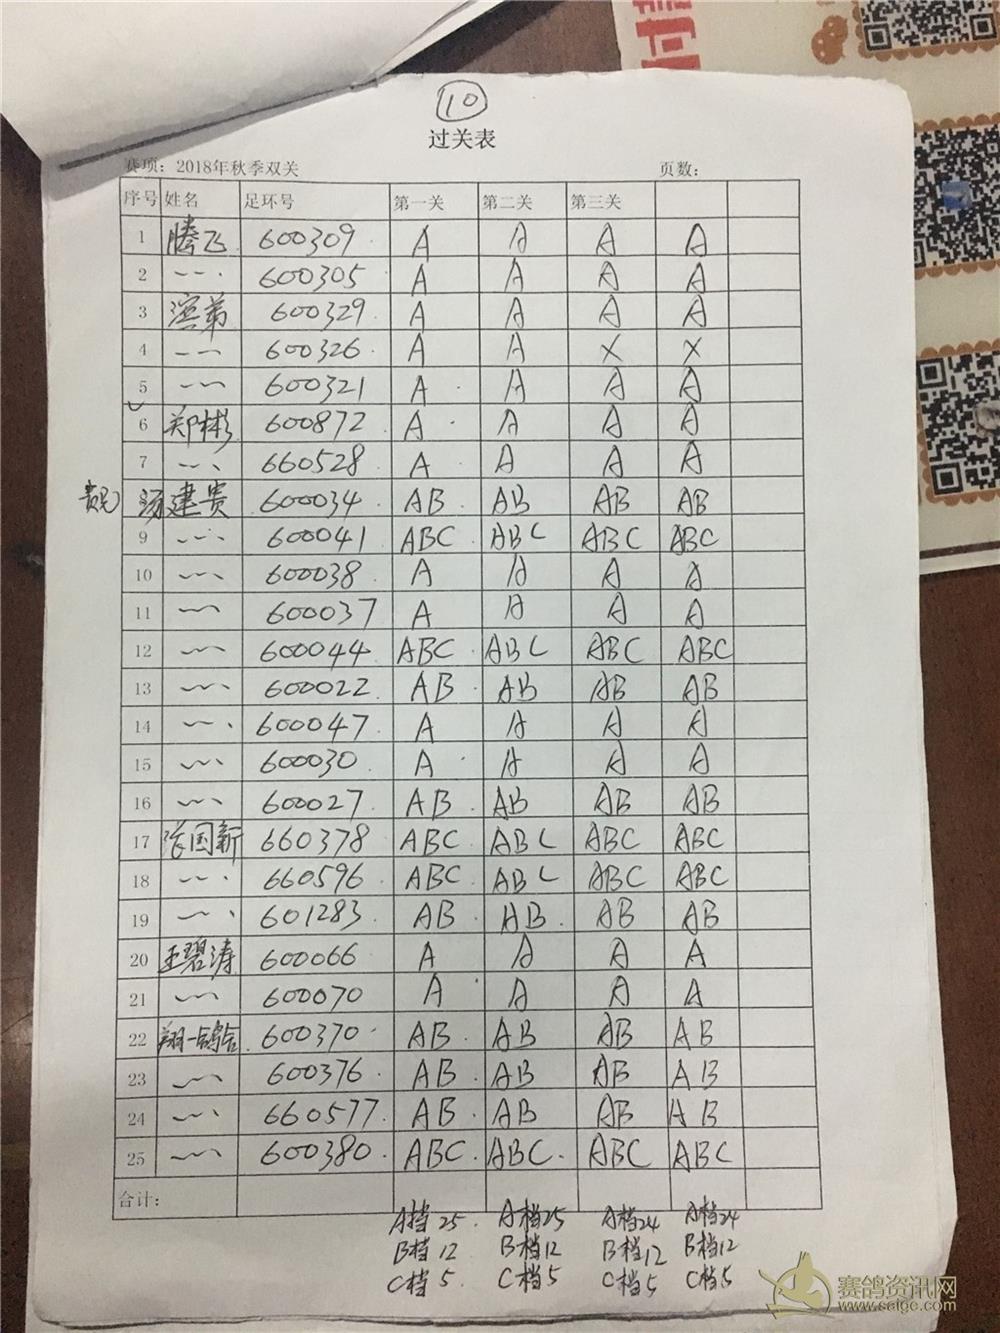 10
过关表
赛项：2018年秋季双关 页数：
序号 姓名 足环号 第一关 第二关 第三关
1 腾飞 600309 A A A A
2 600305 A A A A
3 600329 A A A A
4 600326 A A X X
5 600321 A A A A
6 郑彬 600872 A A A A
7 660528 A A A A
建贵 600034 AB AB AB AB
9 600041 ABC ABC ABC ABC
10 600038 A A A A
11 600037 A A A A
12 600044 ABC ABC ABC ABC
13 600022 AB AB AB AB
14 600047 A A A A
15 600030 A A A A
16 600027 AB AB AB AB
17 张国新 660378 ABC ABC ABC ABC
18 660596 ABC ABC ABC ABC
19 601283 AB AB AB AB
20 王碧涛 600066 A A A A
21 600070 A A A A
22 翔一鸽舍 600370 AB AB AB AB
23 600376 AB AB AB AB
24 660577 AB AB AB AB
25 600380 ABC ABC ABC ABC
合计：
A档25 A档25 A档24 A档24
B档12 B档12 B档12 B档12
C档5 C档5 C档5 C档5
赛鸽资讯网
www.saige.com